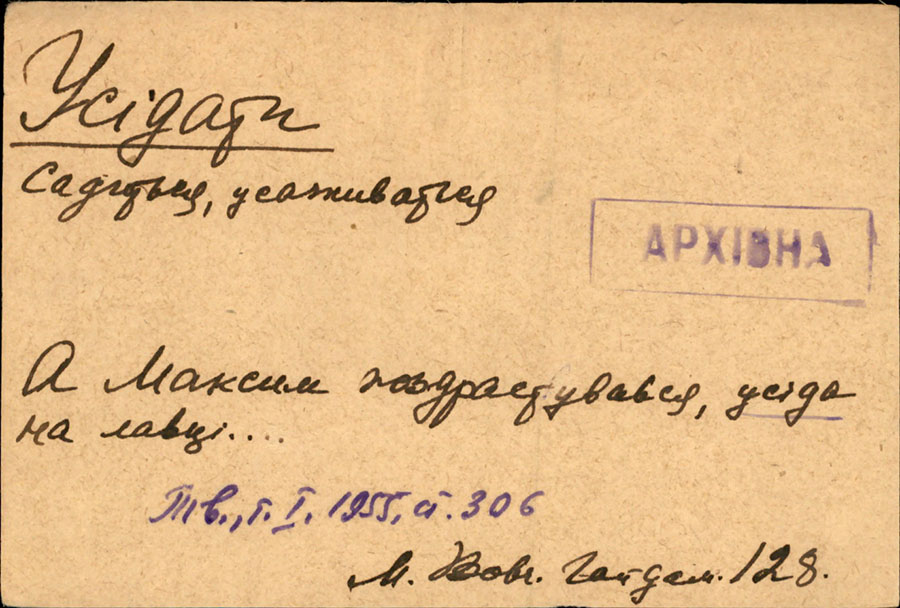 Усідати
Садиться, усаживаться
АРХІВНА
А Максим поздраствувався, усіда
на лавці....
Тв., т. I, 1955, ст. 306
М. Вовч. Гайдам. 128.